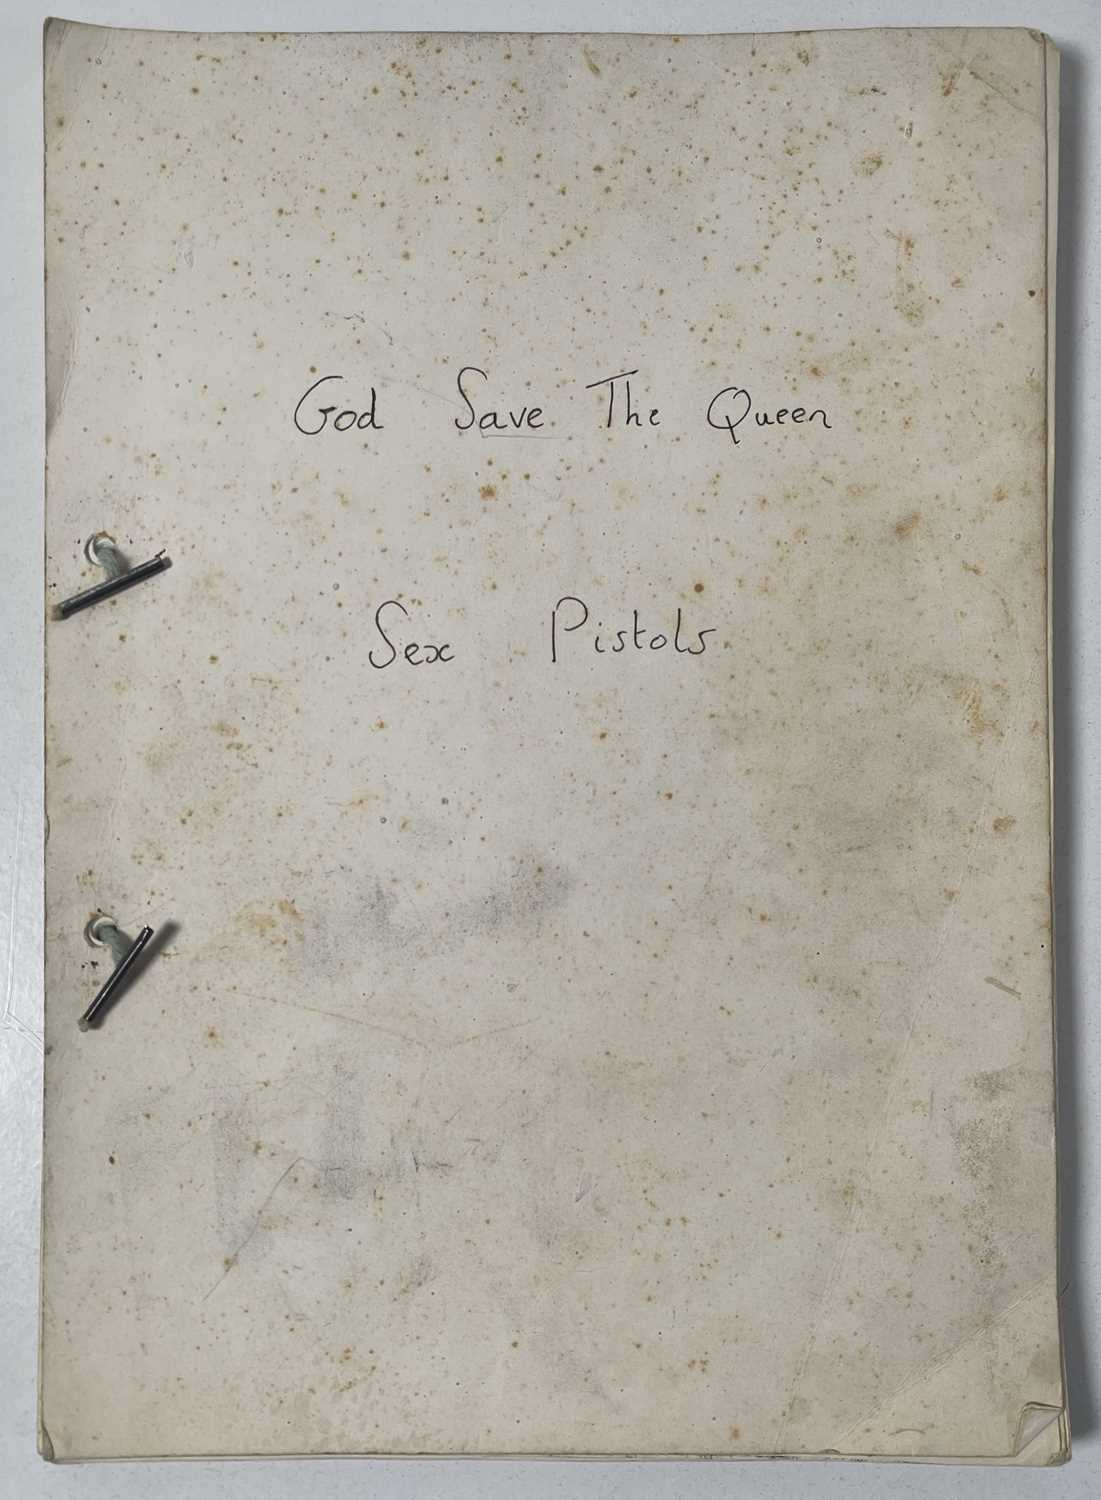 God Save The Queen
Sex Pistols